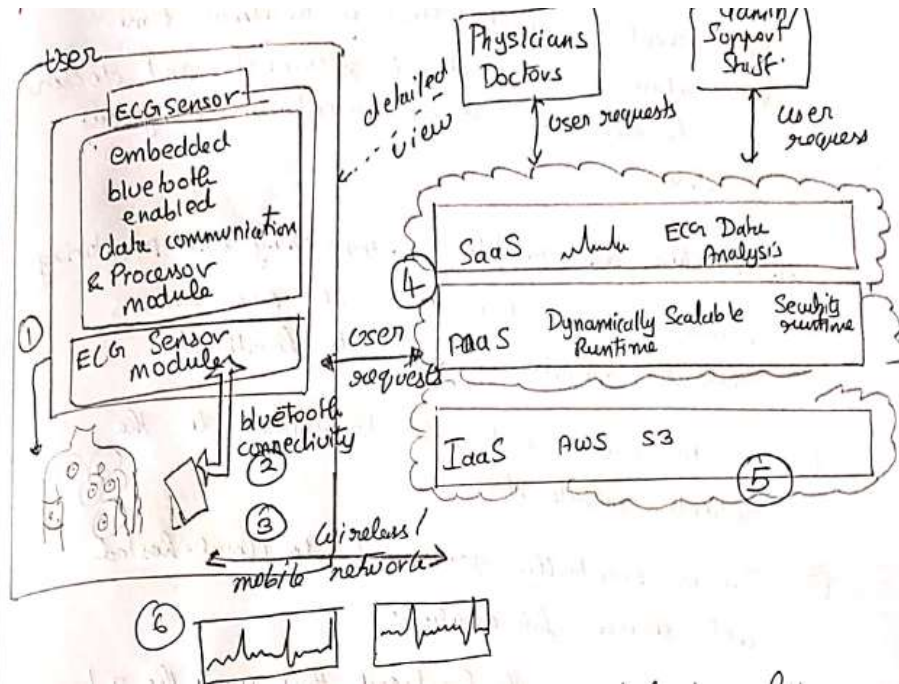 User
ECG sensor
embedded
bluetooth
enabled
data communication
& Processor
module
ECG Sensor
module
1
bluetooth
connectivity
2
3
wireless/
mobile network
6
detailed
view
Physicians
Doctors
Support
Staff.
user requests
user
request
user
requests
4
SaaS ECG Data
Analysis
PaaS Dynamically Scalable Security
Runtime runtime
IaaS AWS S3
5